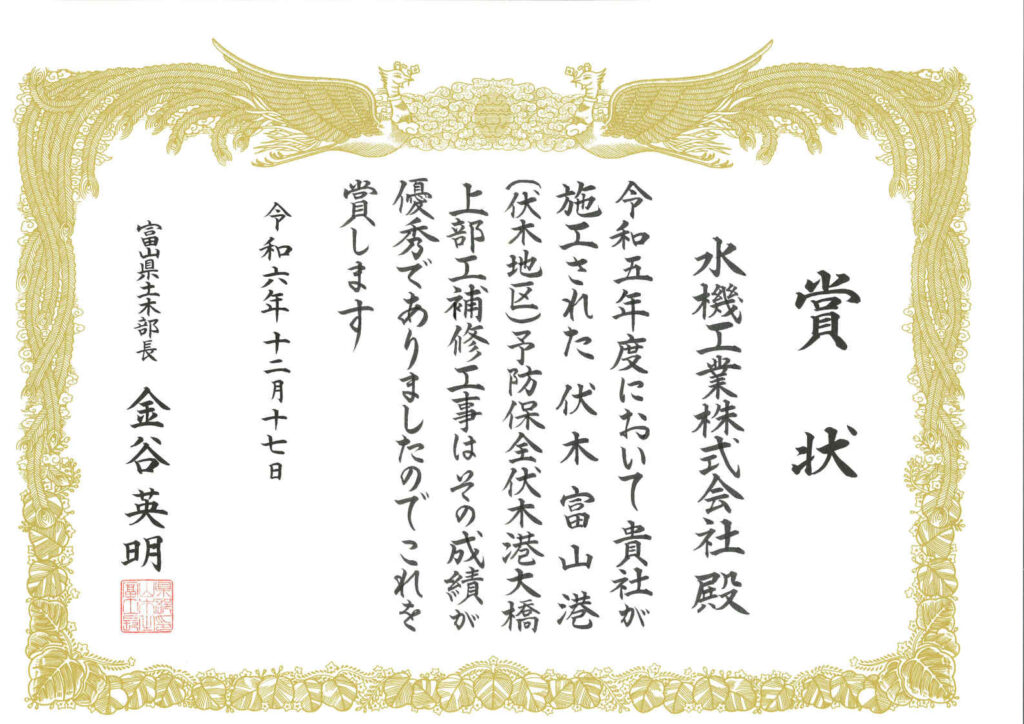 賞状
水機工業株式会社殿
令和五年度において貴社が
施工された伏木富山港
(伏木地区)予防保全伏木港大橋
上部工補修工事はその成績が
優秀でありましたのでこれを
賞します
令和六年十二月十七日
富山県土木部長 金谷英明